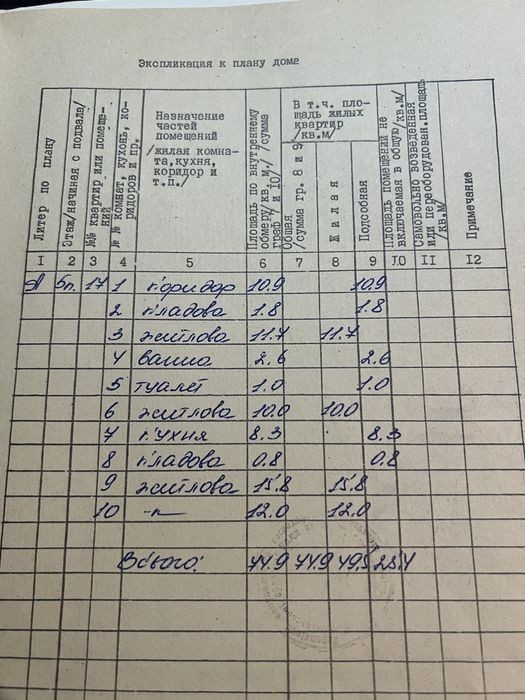 Экспликация к плану дома
Литер по плану
Этаж/начиная с подвала/
№№ квартир или помеще-
ний
№ № комнат, кухонь, ко-
ридоров и пр.
Назначение
частей
помещений
/жилая комна-
та, кухня,
коридор и
т.п./
Площадь по внутреннему
обмеру/кв. м./ /сумма
граф 7 и 10/
В т.ч. пло-
щадь жилых
квартир
/кв.м/
Общая
/сумма гр. 8 и 9/
Жилая
Подсобная
Площадь помещений не
включаемая в общую/кв.м/
Самовольно возведенная
или переоборудован.площадь
/кв.м/
Примечание
1 2 3 4 5 6 7 8 9 10 11 12
А 5п. 17 1 коридор 10.9 10.9
2 кладова 1.8 1.8
3 житлова 11.7 11.7
4 ванна 2.6 2.6
5 туалет 1.0 1.0
6 житлова 10.0 10.0
7 кухня 8.3 8.3
8 кладова 0.8 0.8
9 житлова 15.8 15.8
10 -"- 12.0 12.0
Всього: 74.9 74.9 49.5 25.4